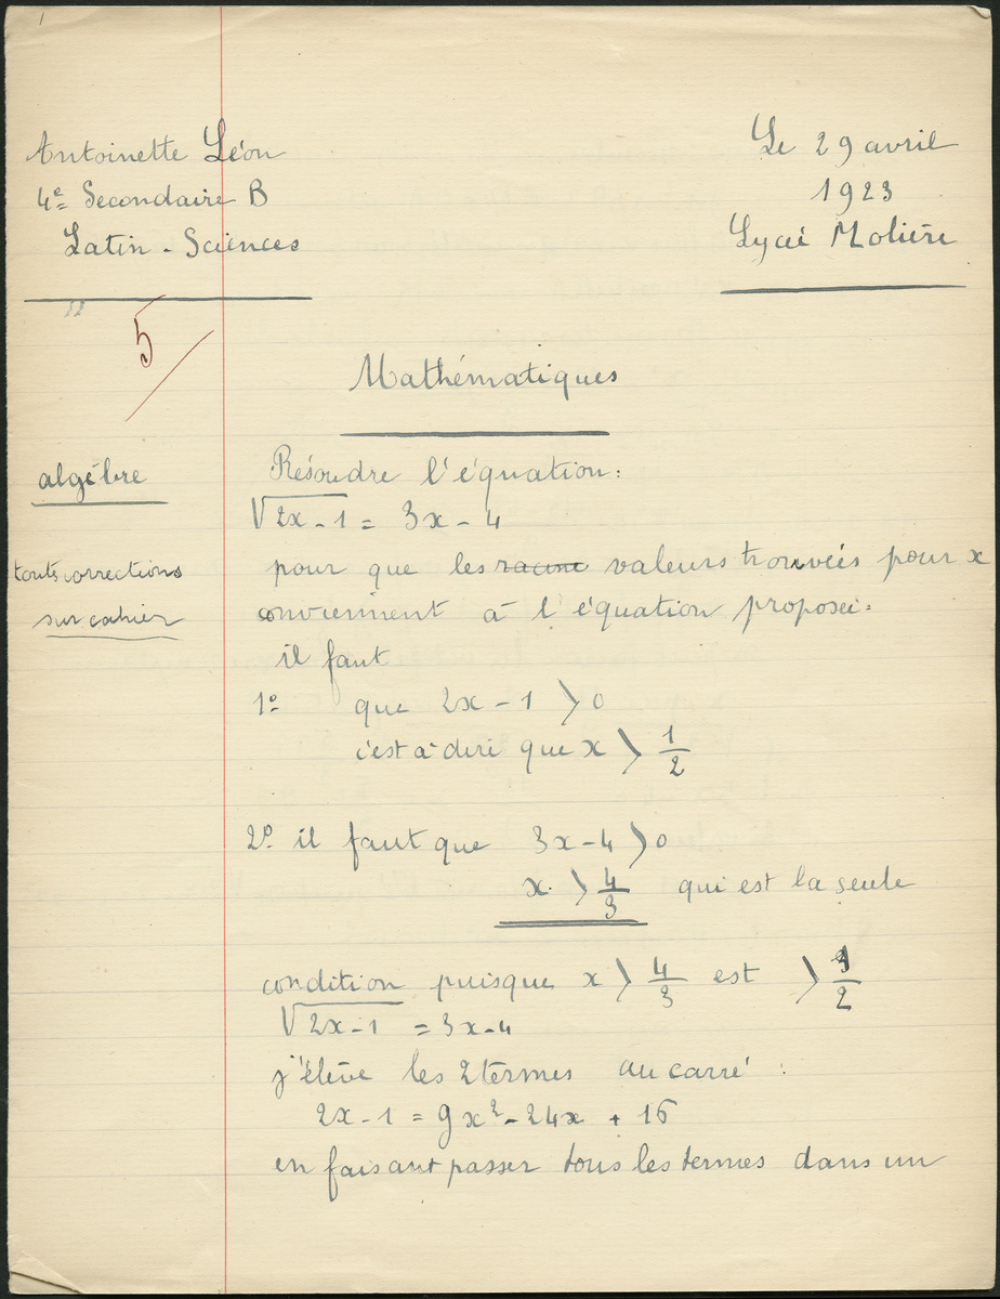 Antoinette Léon
4e Secondaire B
Latin - Sciences
Le 29 avril
1923
Lycée Molière
5
Mathématiques
algèbre
Résoudre l'équation:
√2x-1 = 3x-4
toutes corrections
sur cahier
pour que les racine valeurs trouvées pour x
conviennent à l'équation proposée.
il faut
1º que 2x-1 > 0
c'est à dire que x > 1/2
2º il faut que 3x-4 > 0
x > 4/3 qui est la seule
condition puisque x > 4/3 est > 1/2
√2x-1 = 3x-4
j'élève les 2 termes au carré :
2x-1 = 9x²-24x + 16
en faisant passer tous les termes dans un